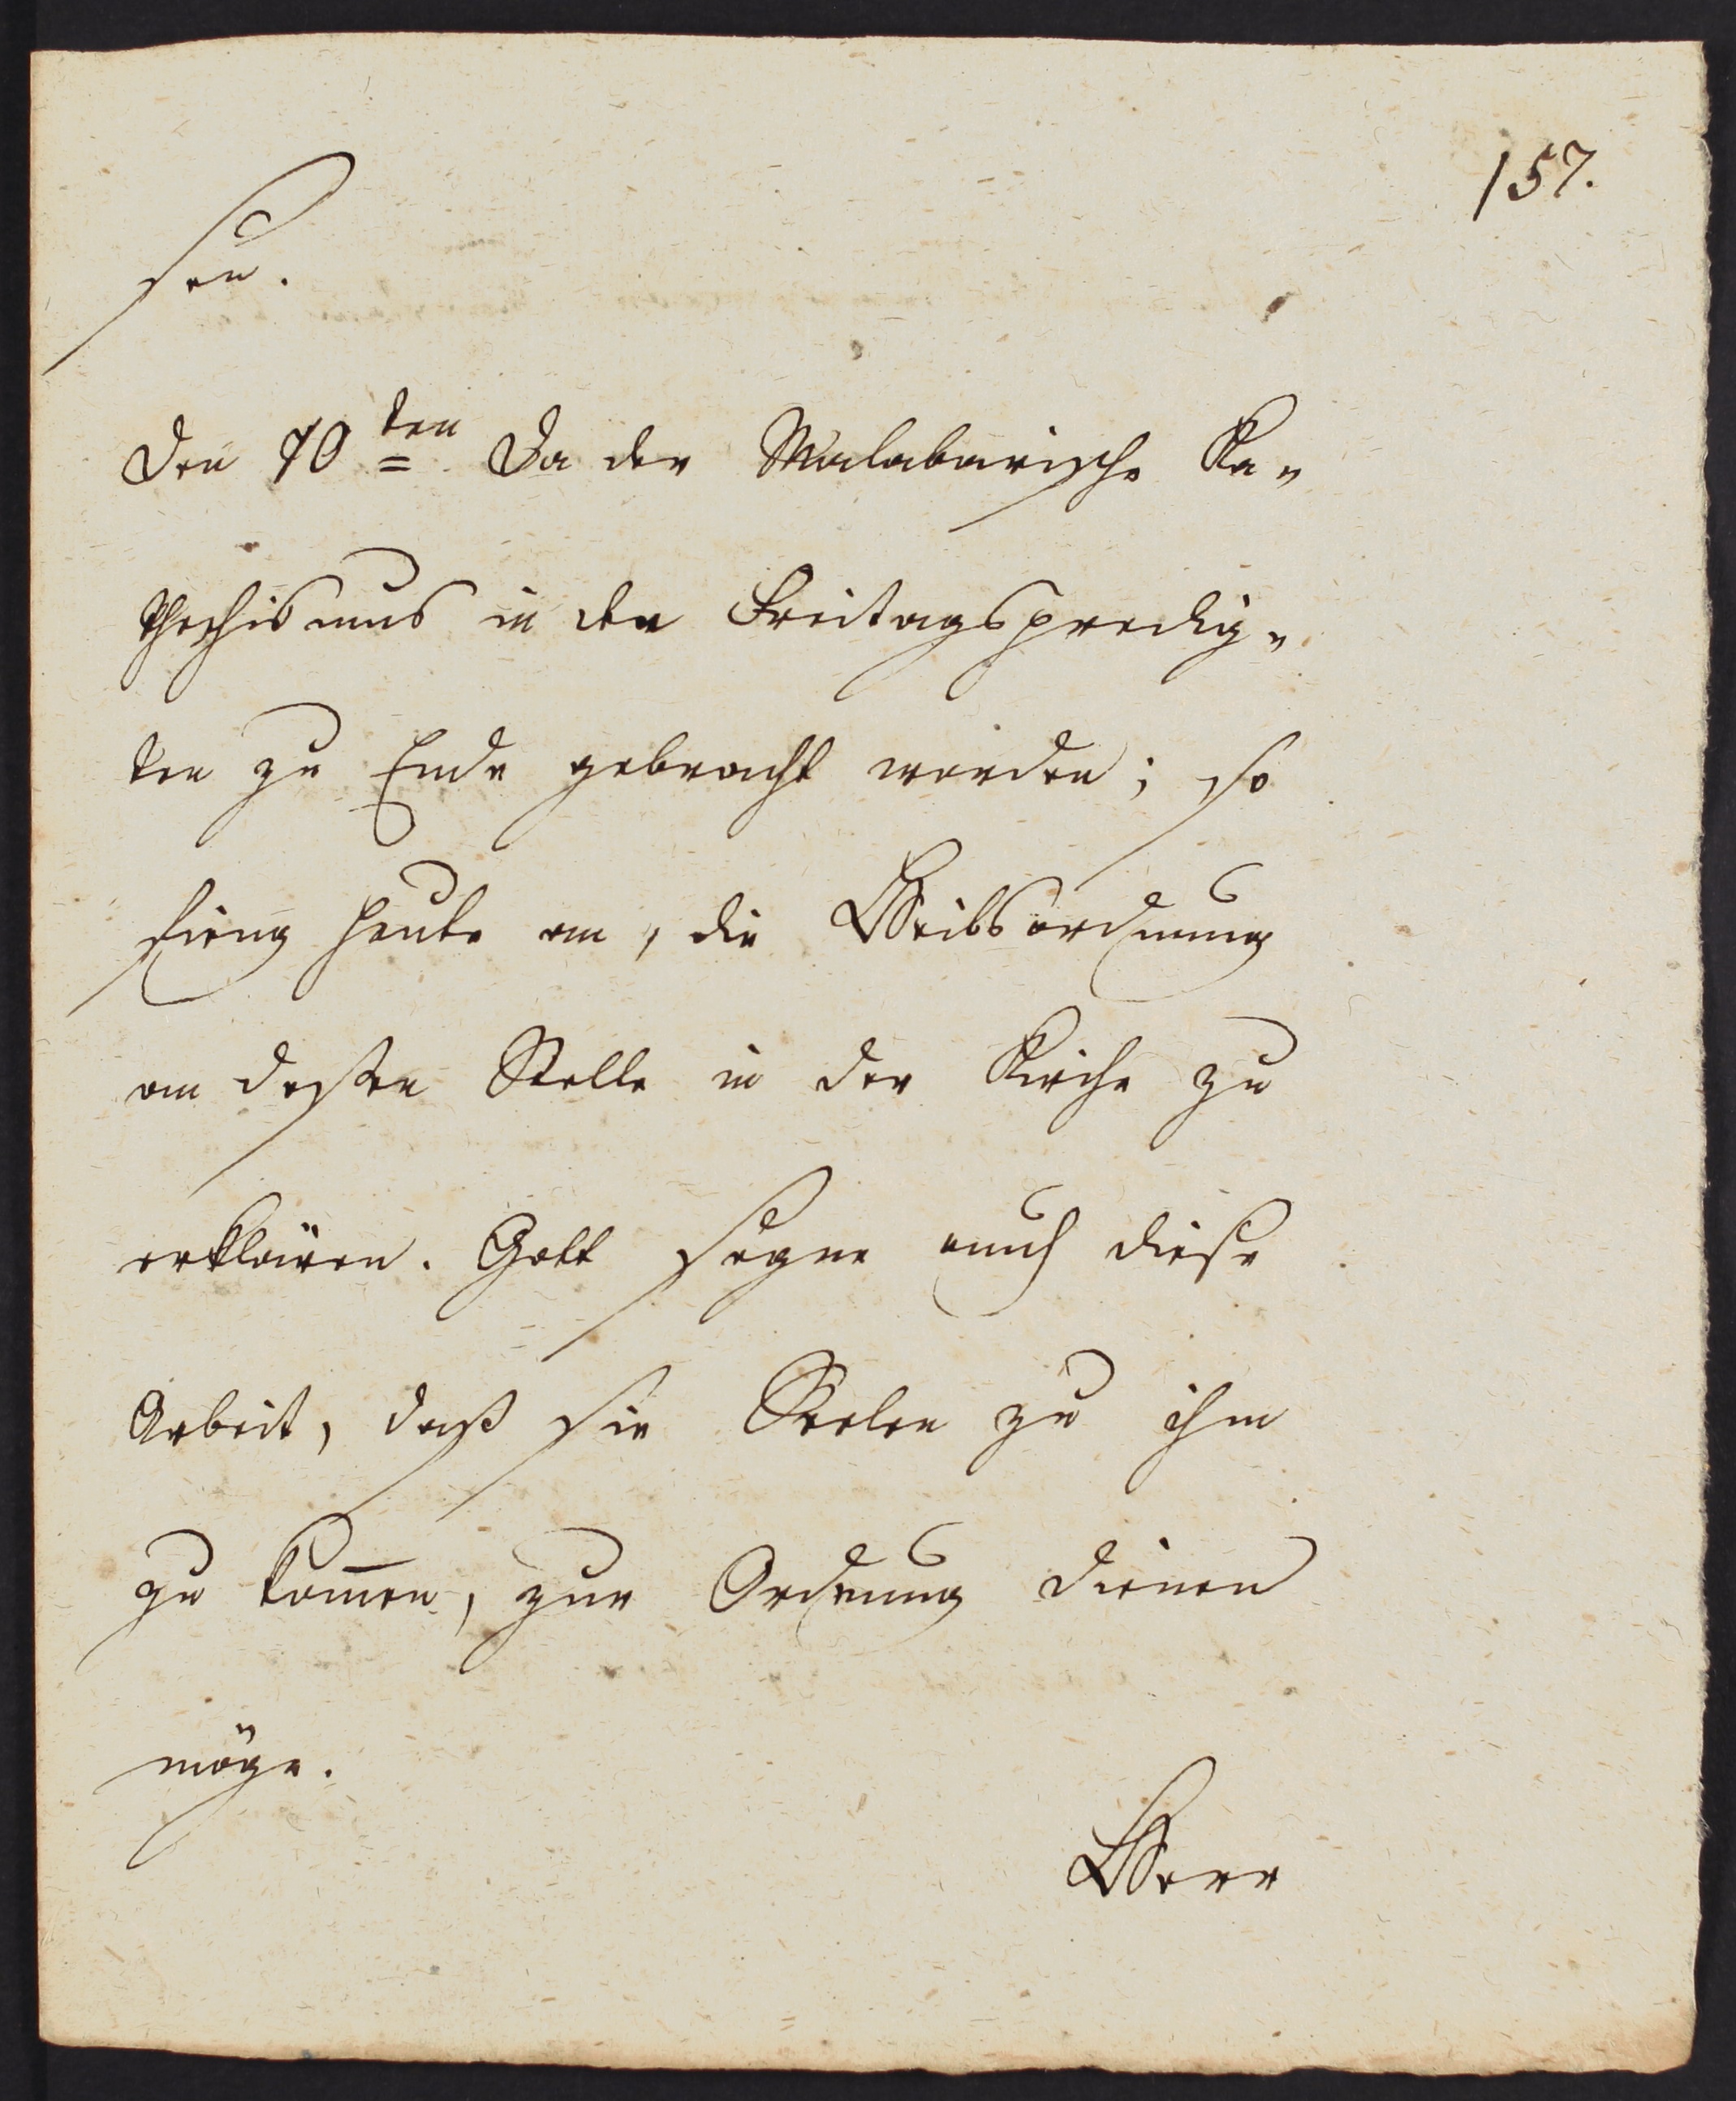 157.
sen.
Den 10ten Da der Malabarische Ka„
thechismus in den Freitagspredig„
ten zu Ende gebracht worden; so
fieng heute an, die Heilsordnung
an deßen Stelle in der Kirche zu
erklären. Gott segne auch diese
Arbeit, daß sie Seelen zu ihm
zu kom̅en, zur Ordnung dienen
möge.